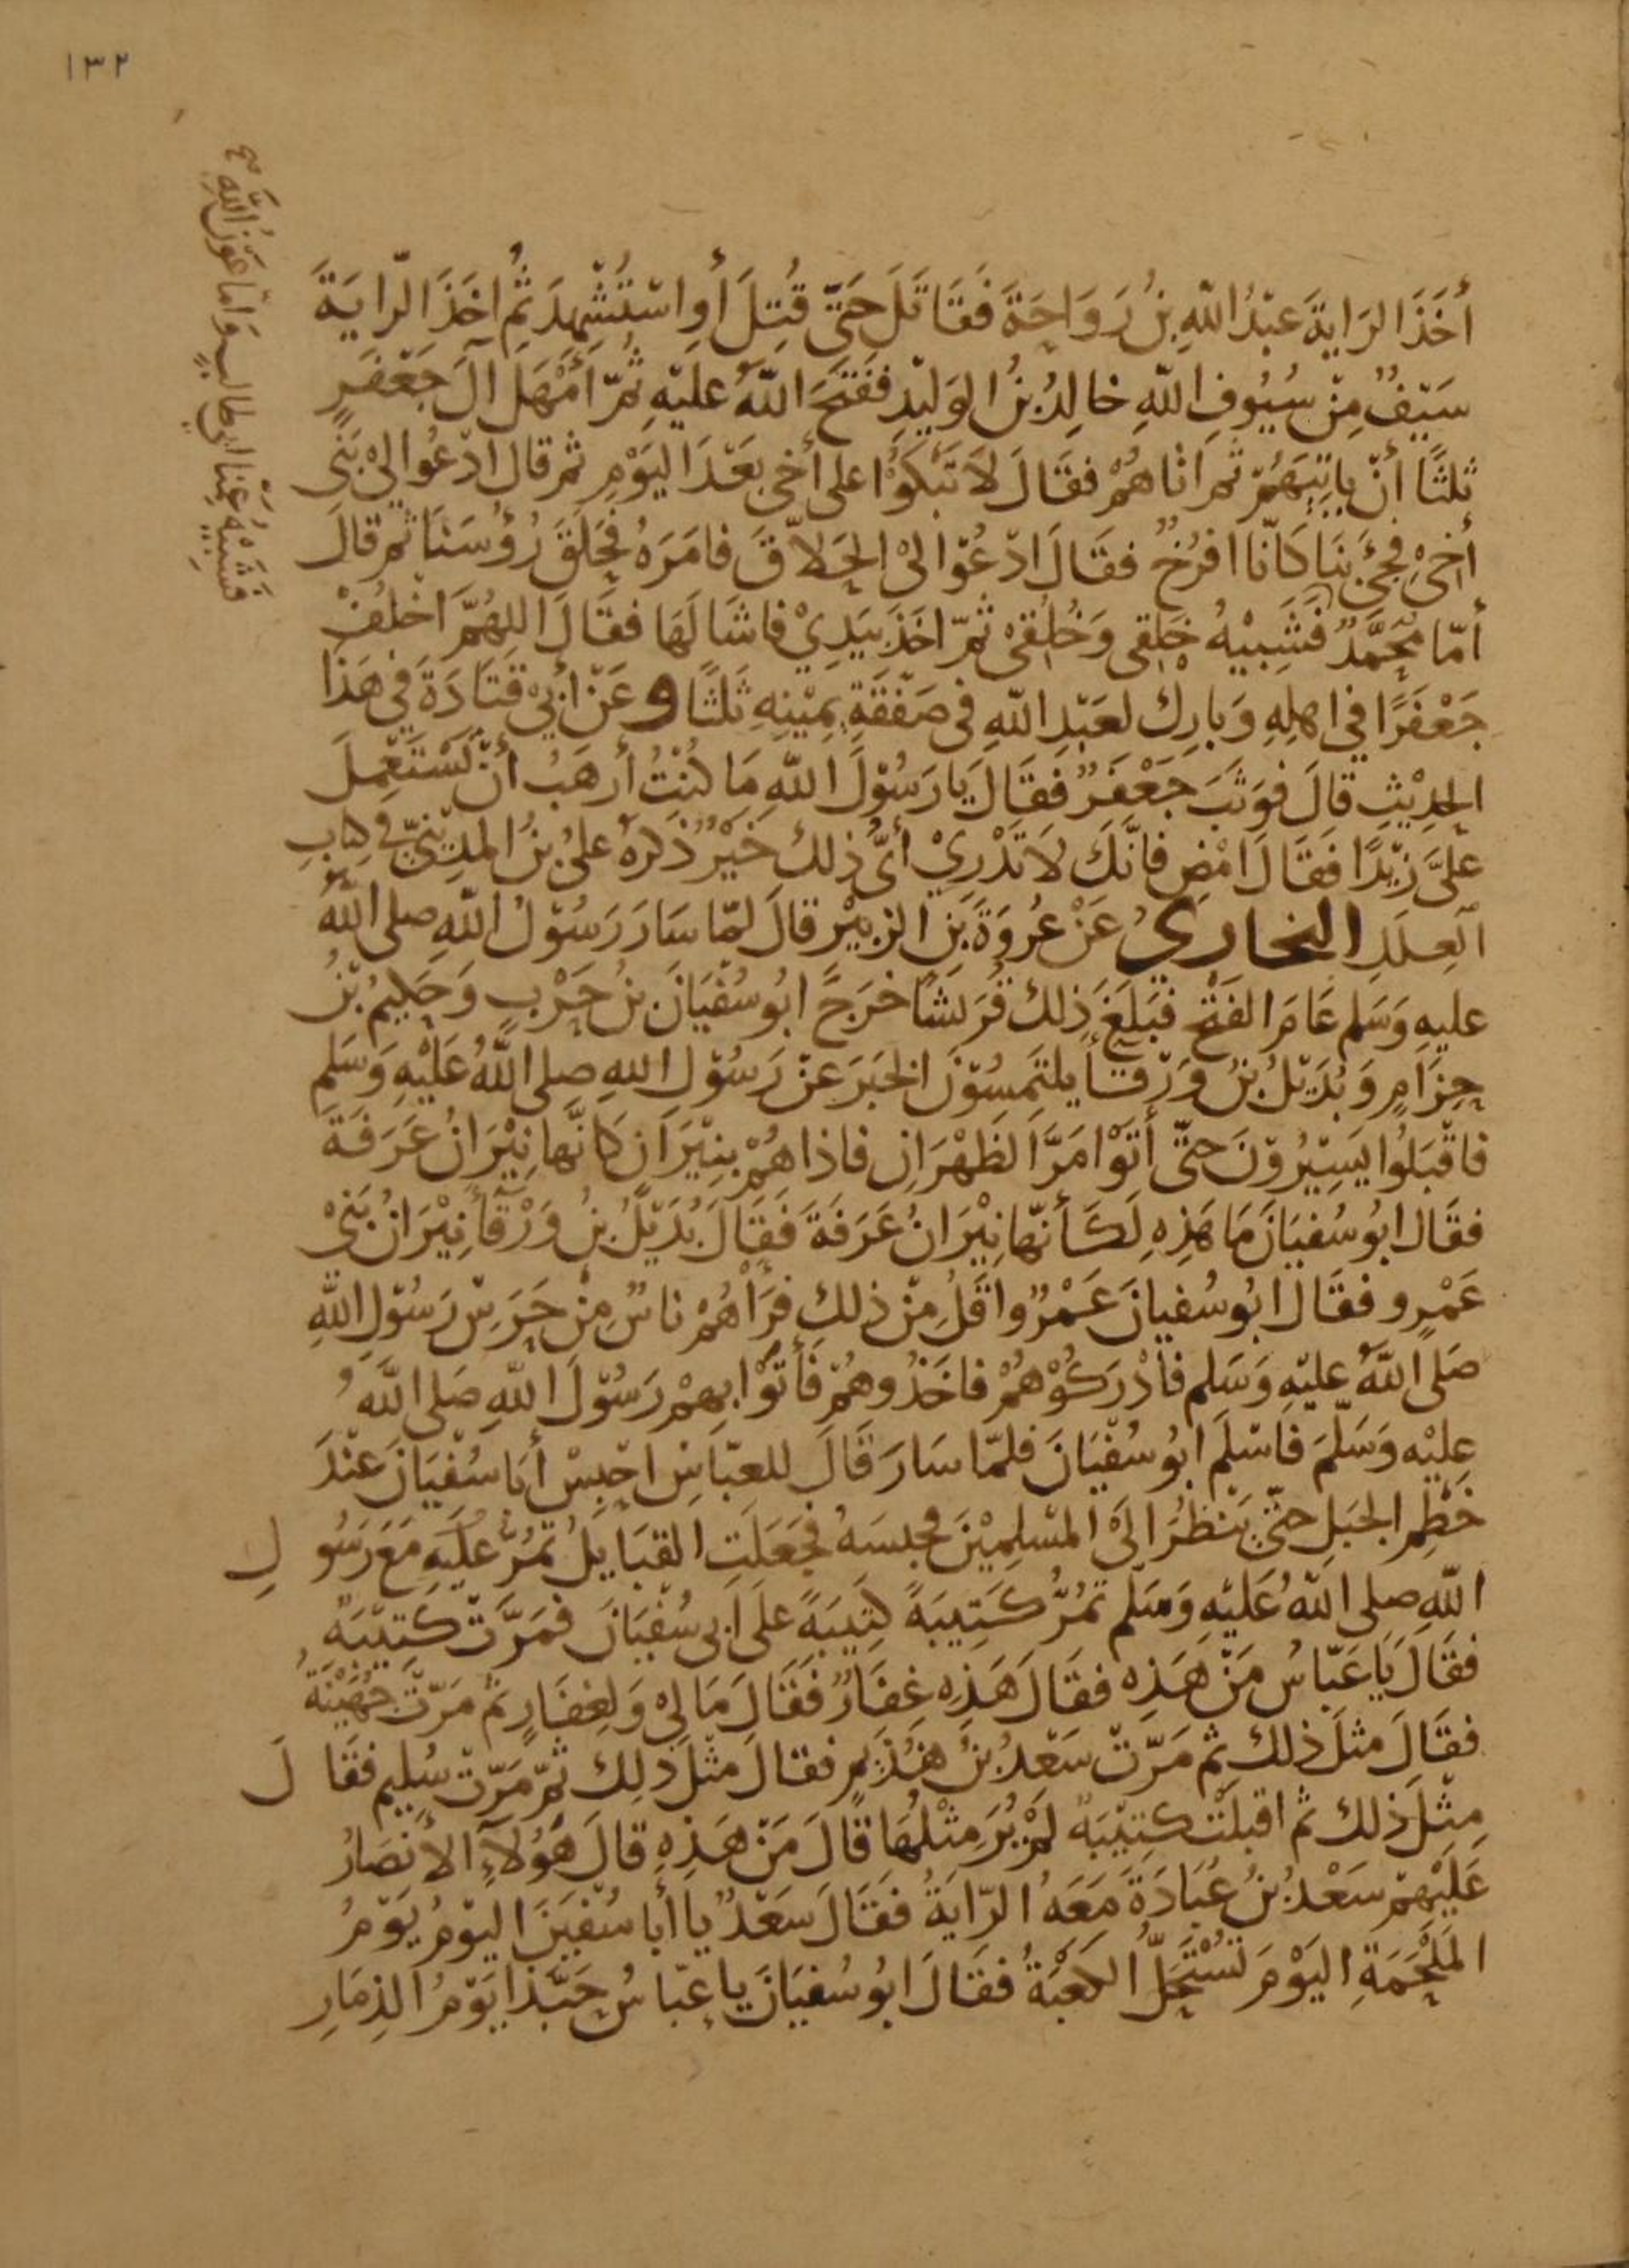 ١٣٢
فشبيه عمنا ابي طالب واما عون الله
أَخَذَ الرَايةَ عَبْدُ اللهِ بنُ رَوَاحَةَ فَقَاتَلَ حَتّى قُتِلَ أَوِ اسْتُشْهِدَ ثُمَّ اخَذَ الرّايَةَ
سَيْفٌ مِنْ سُيُوفِ اللهِ خالِدُ بنُ الوَلِيْدِ ففَتَحَ اللهُ عليْهِ ثُمّ أَمْهَلَ آلَ جَعْفَرٍ
ثلثًا أنْ ياتِيَهُمْ ثم اتاهُمْ فقَالَ لاَ تَبْكُوْا على أخي بَعْدَ اليَوْمِ ثم قال ادْعُوا لِيْ بَنِي
أخِيْ فجئَ بنَا كَانّا افرُخٌ فقَالَ ادْعُوْا لِيْ الحَلاّقَ فامَرَهُ فحَلَقَ رُؤُسَنَا ثم قالَ
أمّا مُحَمَّدٌ فَشَبِيْهُ خَلقِي وَخُلُقيْ ثمّ اخَذَ بيَدِيْ فاشَالَهَا فقَالَ اللهُمَّ اخْلُفْ
جَعْفَرًا فِي اهلِهِ وَبارِك لعَبْدِ اللهِ في صَفْقَةِ يَمِيْنِهِ ثَلثًا وعَنْ أَبيْ قتَادَةَ فِي هَذَا
الحدِيْثِ قالَ فوَثَبَ جَعْفَرٌ فقَالَ يَا رَسُوْلَ اللهِ مَا كُنْتُ أرهَبُ أنْ تَسْتَعْمِلَ
علَيَّ زيْدًا فقَالَ امْضِ فانّكَ لاَ تَدْرِيْ أىُّ ذلك خَيْرٌ ذكرهُ عليُّ بنُ المدِيْنِيّ في كتابِ
العِلَلِ البخاريُّ عَنْ عُروَةَ بنِ الزبيْرِ قالَ لمّا سَارَ رَسُوْلُ اللهِ صلى اللهُ
عليهِ وَسَلم عَامَ الفَتْحِ فبَلَغَ ذلك قُرَيشًا خرَجَ ابُو سُفْيَانَ بنُ حَرْبٍ وَحَكِيمُ بْنُ
حِزَامٍ وَبُدَيْلُ بنُ وَرْقَا يلتَمِسُوْنَ الخبَرَ عَنْ رَسُوْلِ اللهِ صلى اللَّهُ عَلَيْهِ وَسَلم
فاقْبَلُوا يَسِيْرُوْنَ حتّى أتَوْا مَرَّ الظَهْرَانِ فاذا هُمْ بنِيْرَانٍ كَانَّها نِيْرَانُ عَرَفَةَ
فقَال ابُو سُفيَانَ مَا هَذِهِ لكَأنّها نِيْرَانُ عَرَفَةَ فقَالَ بُدَيْلُ بنُ وَرْقَآ نِيْرَانُ بَنِيْ
عَمْرٍو فقَالَ ابُو سُفيانَ عَمْرٌو اقَلُ مِنْ ذلك فرَآهُمْ ناسٌ مِنْ حَرَسِ رَسُوْلِ اللهِ
صَلى اللَّهُ عليْهِ وَسَلم فأدْرَكُوْهُمْ فاخَذُوهُمْ فَأتَوْا بِهِمْ رَسُوْلَ اللهِ صَلى اللَّهُ
عليْهِ وَسَلّمَ فاسْلَم ابُو سُفْيَانَ فلمّا سَارَ قَالَ للعبّاسِ احْبِسْ أبَا سُفْيَانَ عنْدَ
خَطْمِ الجبَلِ حتّى يَنظُرَ الَى المسْلِمِيْنَ فحبسَهُ فجَعَلَتِ القبَايِلُ تَمُرُّ عليهِ مَعَ رَسُولِ
اللهِ صلى اللهُ عَليْهِ وَسَلّم تَمُرُّ كَتِيبَةً كتِيبَةً علَى أبِي سُفْيَانَ فمَرَّتْ كَتِيْبَةٌ
فقَالَ يَا عَبّاسُ مَنْ هَذِهِ فقَالَ هَذِهِ غفَارٌ فقَالَ مَا لِيْ وَلِغِفَارٍ ثم مَرّتْ جُهَيْنَةُ
فقَالَ مثلَ ذلك ثم مَرّتْ سَعْدُ بنُ هُذَيمٍ فقالَ مثْلَ ذلِك ثمّ مَرّتْ سُليم فقَالَ
مِثلَ ذلك ثم اقبلَتْ كتِيْبَةٌ لَمْ يُرَ مِثْلُهَا قالَ مَنْ هَذِهِ قالَ هَؤُلآءِ الأنصَارُ
عَليْهِمْ سَعْدُ بنُ عُبَادَةَ مَعَهُ الرّايَةُ فقَالَ سَعْدٌ يا أبا سُفيَنَ اليَوْمُ يَوْمُ
المَلحَمَةِ اليَوْمَ تُسْتَحَلُّ الكَعْبَةُ فقَالَ ابُو سُفيَانَ يا عبّاسُ حَبّذا يَوْمُ الذِمَارِ